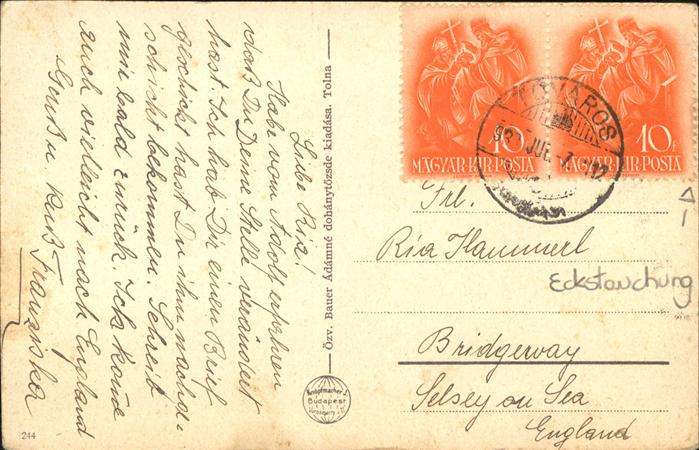 Liebe Ria!
Habe vom Adolf erfahren
daß Du Deine Stelle verändert
hast. Ich hab Dir einen Brief
geschickt hast Du ihn
schicht bekommen. Schreib
mir bald zurück. Ich komme
auch vielleicht nach England
Gruß u. Kuß Franziska
Özv. Bauer Ádámné dohánytőzsde kiadása. Tolna
244
Budapest
10f 10f
MAGYAR·KIR·POSTA MAGYAR·KIR·POSTA
VÁROS
Frl.
Ria Hammerl
Eckstauchung
Bridgeway
Selsey on Sea
England